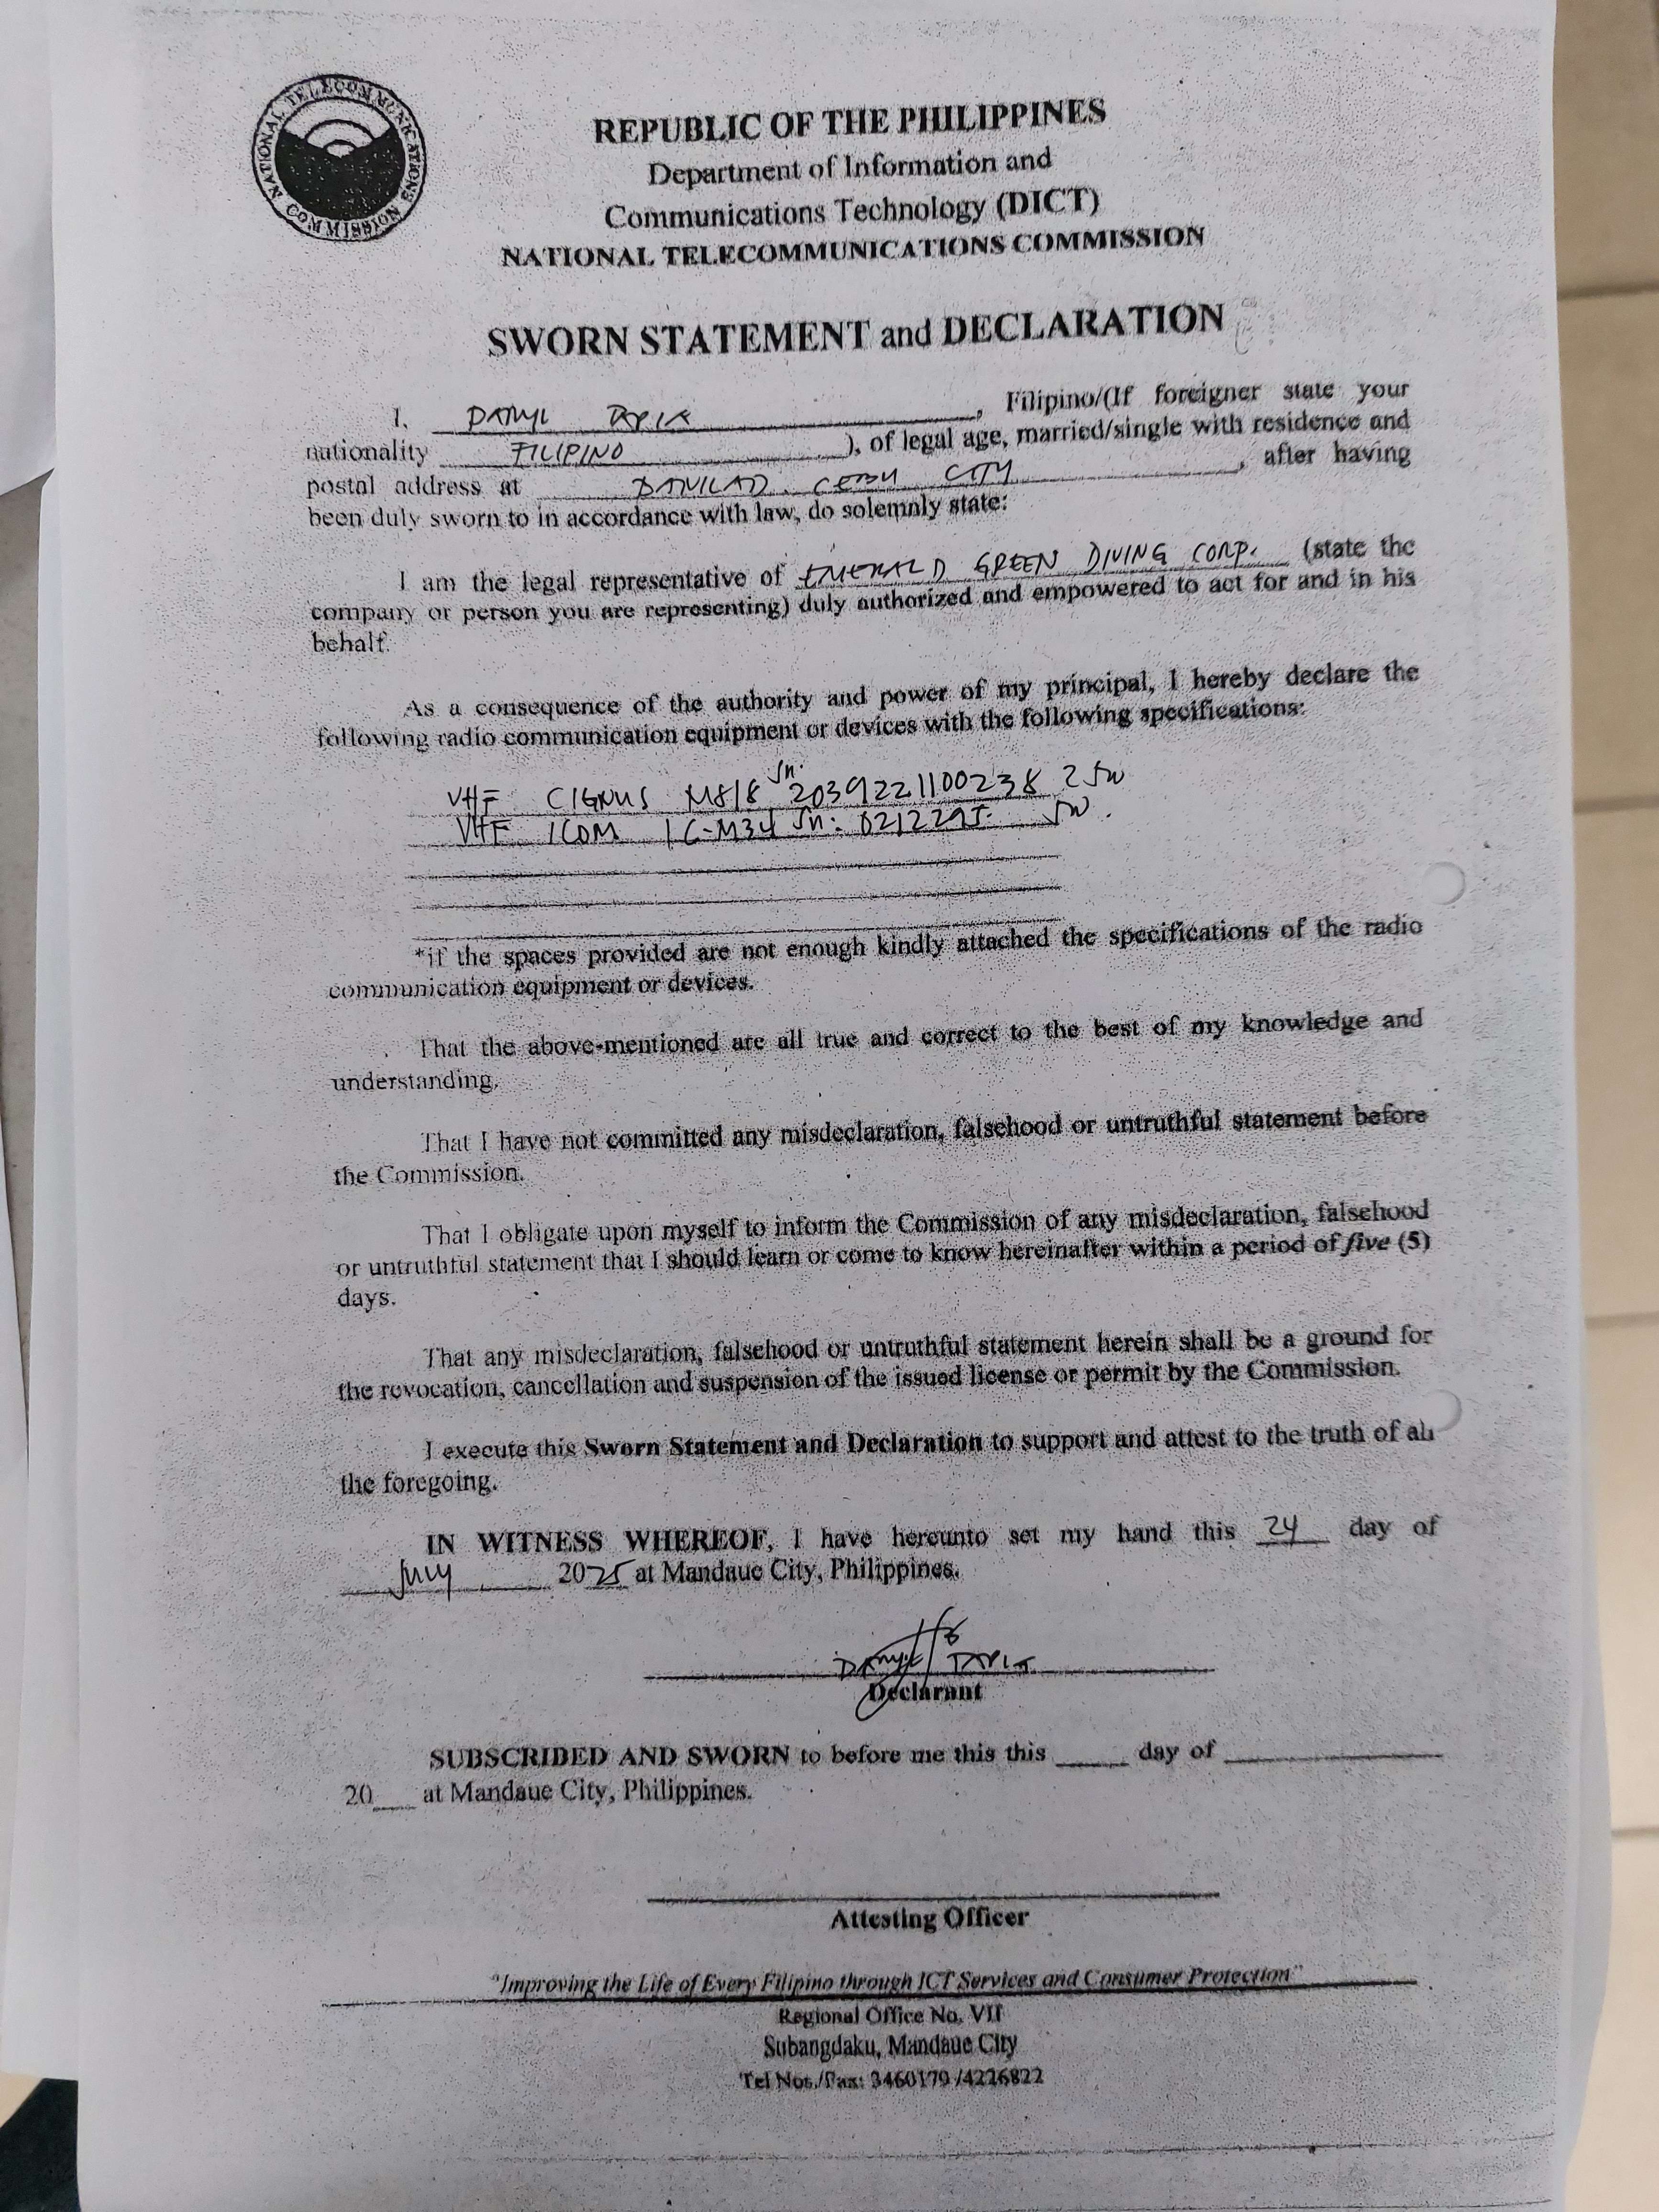 NATIONAL TELECOMMUNICATIONS COMMISSION
REPUBLIC OF THE PHILIPPINES
Department of Information and
Communications Technology (DICT)
NATIONAL TELECOMMUNICATIONS COMMISSION
SWORN STATEMENT and DECLARATION
I, DARYL TAPIA, Filipino/(If foreigner state your
nationality FILIPINO), of legal age, married/single with residence and
postal address at BANILAD, CEBU CITY, after having
been duly sworn to in accordance with law, do solemnly state:
I am the legal representative of EMERALD GREEN DIVING CORP. (state the
company or person you are representing) duly authorized and empowered to act for and in his
behalf.
As a consequence of the authority and power of my principal, I hereby declare the
following radio communication equipment or devices with the following specifications:
VHF CIGNUS M818 Sn. 2039221100238 25W
VHF ICOM IC-M34 Sn: 5W.
*if the spaces provided are not enough kindly attached the specifications of the radio
communication equipment or devices.
That the above-mentioned are all true and correct to the best of my knowledge and
understanding.
That I have not committed any misdeclaration, falsehood or untruthful statement before
the Commission.
That I obligate upon myself to inform the Commission of any misdeclaration, falsehood
or untruthful statement that I should learn or come to know hereinafter within a period of five (5)
days.
That any misdeclaration, falsehood or untruthful statement herein shall be a ground for
the revocation, cancellation and suspension of the issued license or permit by the Commission.
I execute this Sworn Statement and Declaration to support and attest to the truth of all
the foregoing.
IN WITNESS WHEREOF, I have hereunto set my hand this 24 day of
July 2025 at Mandaue City, Philippines.
DARYL TAPIA
Declarant
SUBSCRIBED AND SWORN to before me this this ____ day of ____
20__ at Mandaue City, Philippines.
Attesting Officer
"Improving the Life of Every Filipino through ICT Services and Consumer Protection"
Regional Office No. VII
Subangdaku, Mandaue City
Tel Nos./Fax: 3460179 /4226822